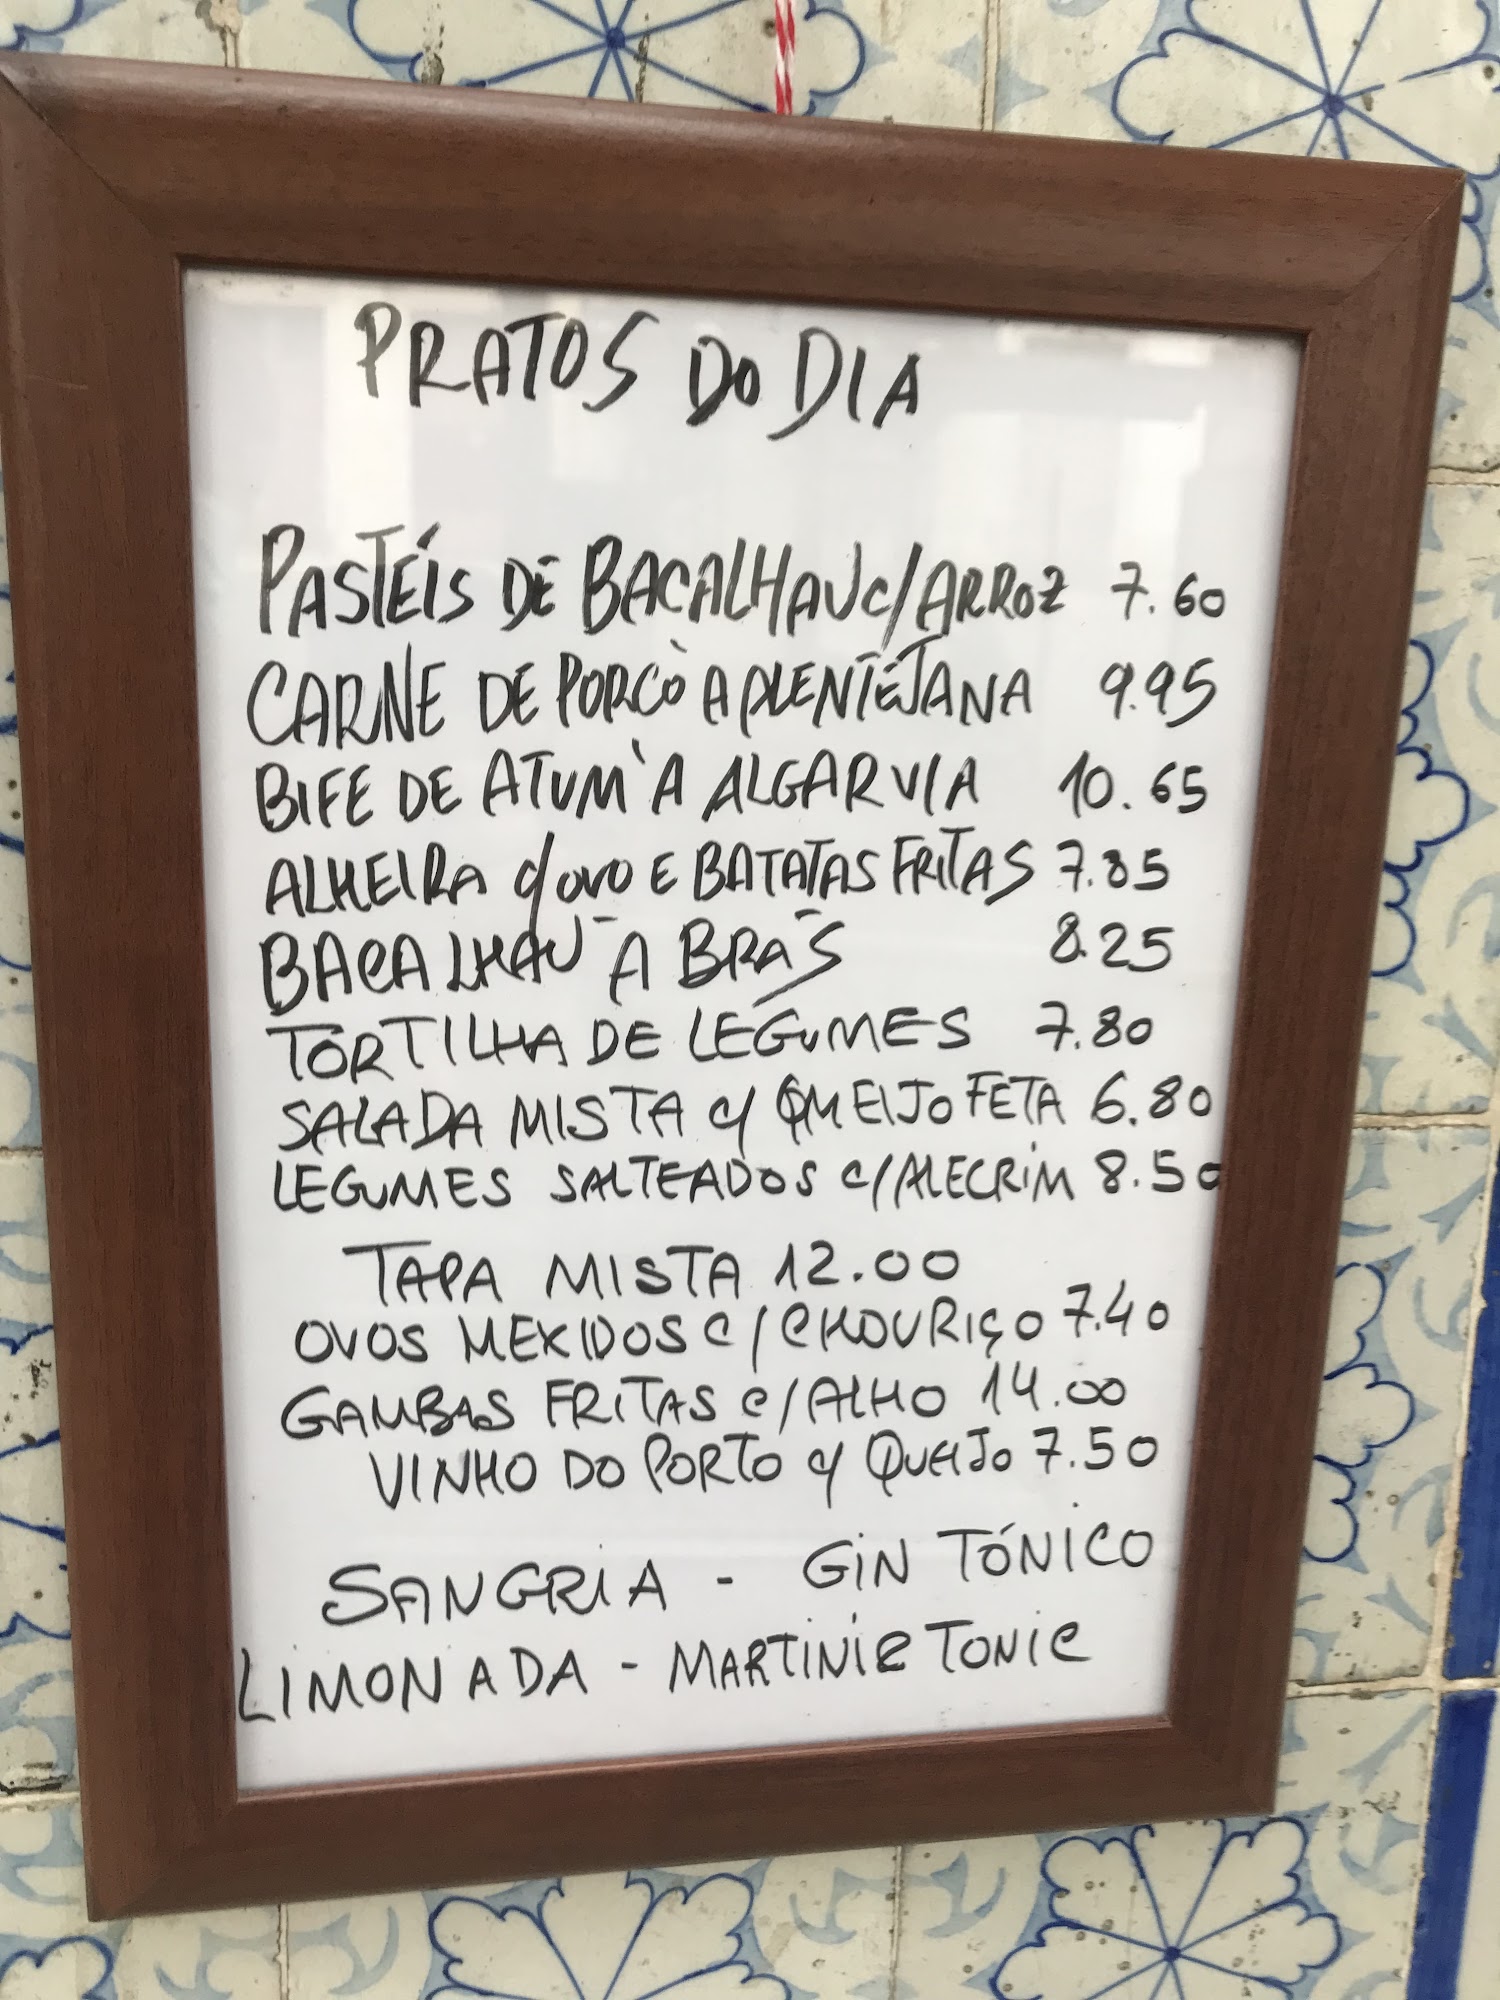 PRATOS DO DIA
PASTÉIS DE BACALHAU C/ARROZ 7.60
CARNE DE PORCO À ALENTEJANA 9.95
BIFE DE ATUM À ALGARVIA 10.65
ALHEIRA C/OVO E BATATAS FRITAS 7.85
BACALHAU À BRÁS 8.25
TORTILHA DE LEGUMES 7.80
SALADA MISTA C/ QUEIJO FETA 6.80
LEGUMES SALTEADOS C/ALECRIM 8.50
TAPA MISTA 12.00
OVOS MEXIDOS C/CHOURIÇO 7.40
GAMBAS FRITAS C/ALHO 14.00
VINHO DO PORTO C/ QUEIJO 7.50
SANGRIA - GIN TÓNICO
LIMONADA - MARTINI E TONIC